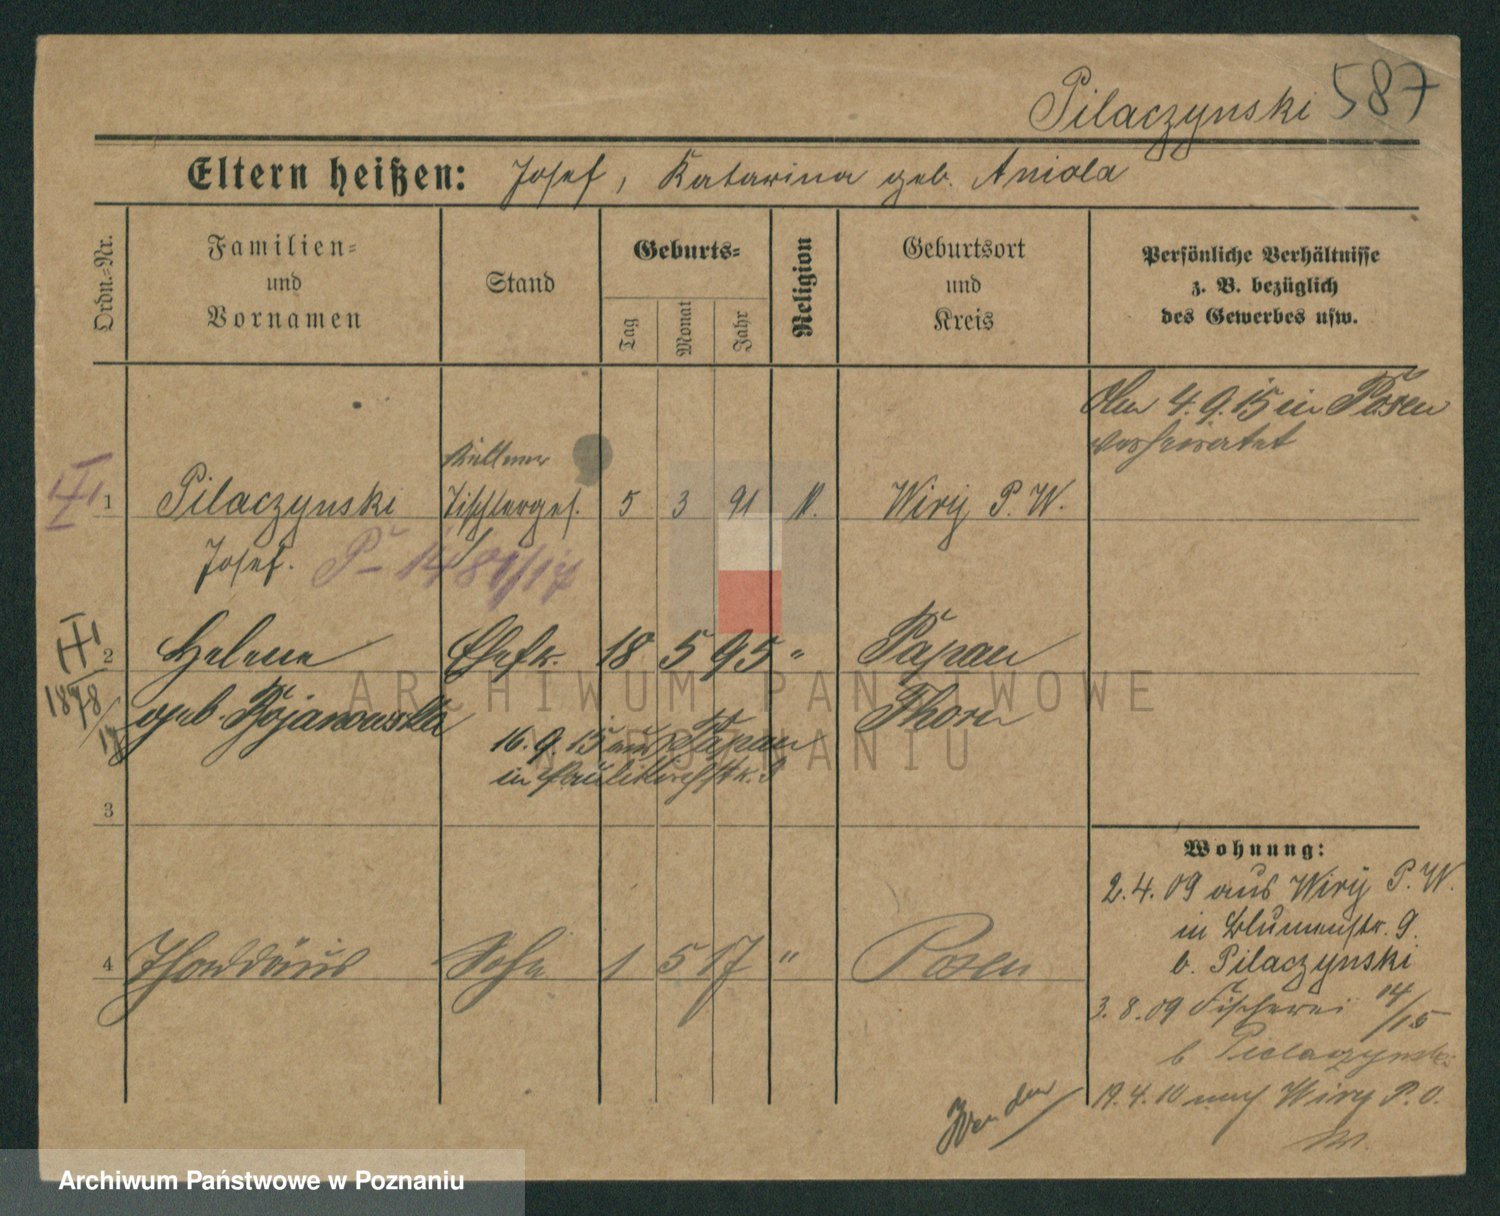 Pilaczynski 587
Eltern heißen: Josef, Katarina geb. Aniola
Ordn.-Nr.
Familien-
und
Vornamen
Stand
Geburts-
Tag
Monat
Jahr
Religion
Geburtsort
und
Kreis
Persönliche Verhältnisse
z. B. bezüglich
des Gewerbes usw.
Am 4.9.15 in Posen
verheiratet
Kellner
1 Pilaczynski Tischlerges. 5 3 91 K. Wiry P. W.
Josef. P 1481/17
2 Helene Ehefr. 18 5 95 " Papau
1878/17
geb. Bojanowska Thorn
16.9.15 aus Papau
in Paulikirchstr. 3
3
4 Thaddäus Sohn 1 5 17 " Posen
Wohnung:
2.4.09 aus Wiry P. W.
in Blumenstr. 9.
b. Pilaczynski
3.8.09 Fischerei 14/15
b Pielaczynski
19.4.10 nach Wiry P. O.
W.
Wenden
ARCHIWUM PAŃSTWOWE
W POZNANIU
Archiwum Państwowe w Poznaniu